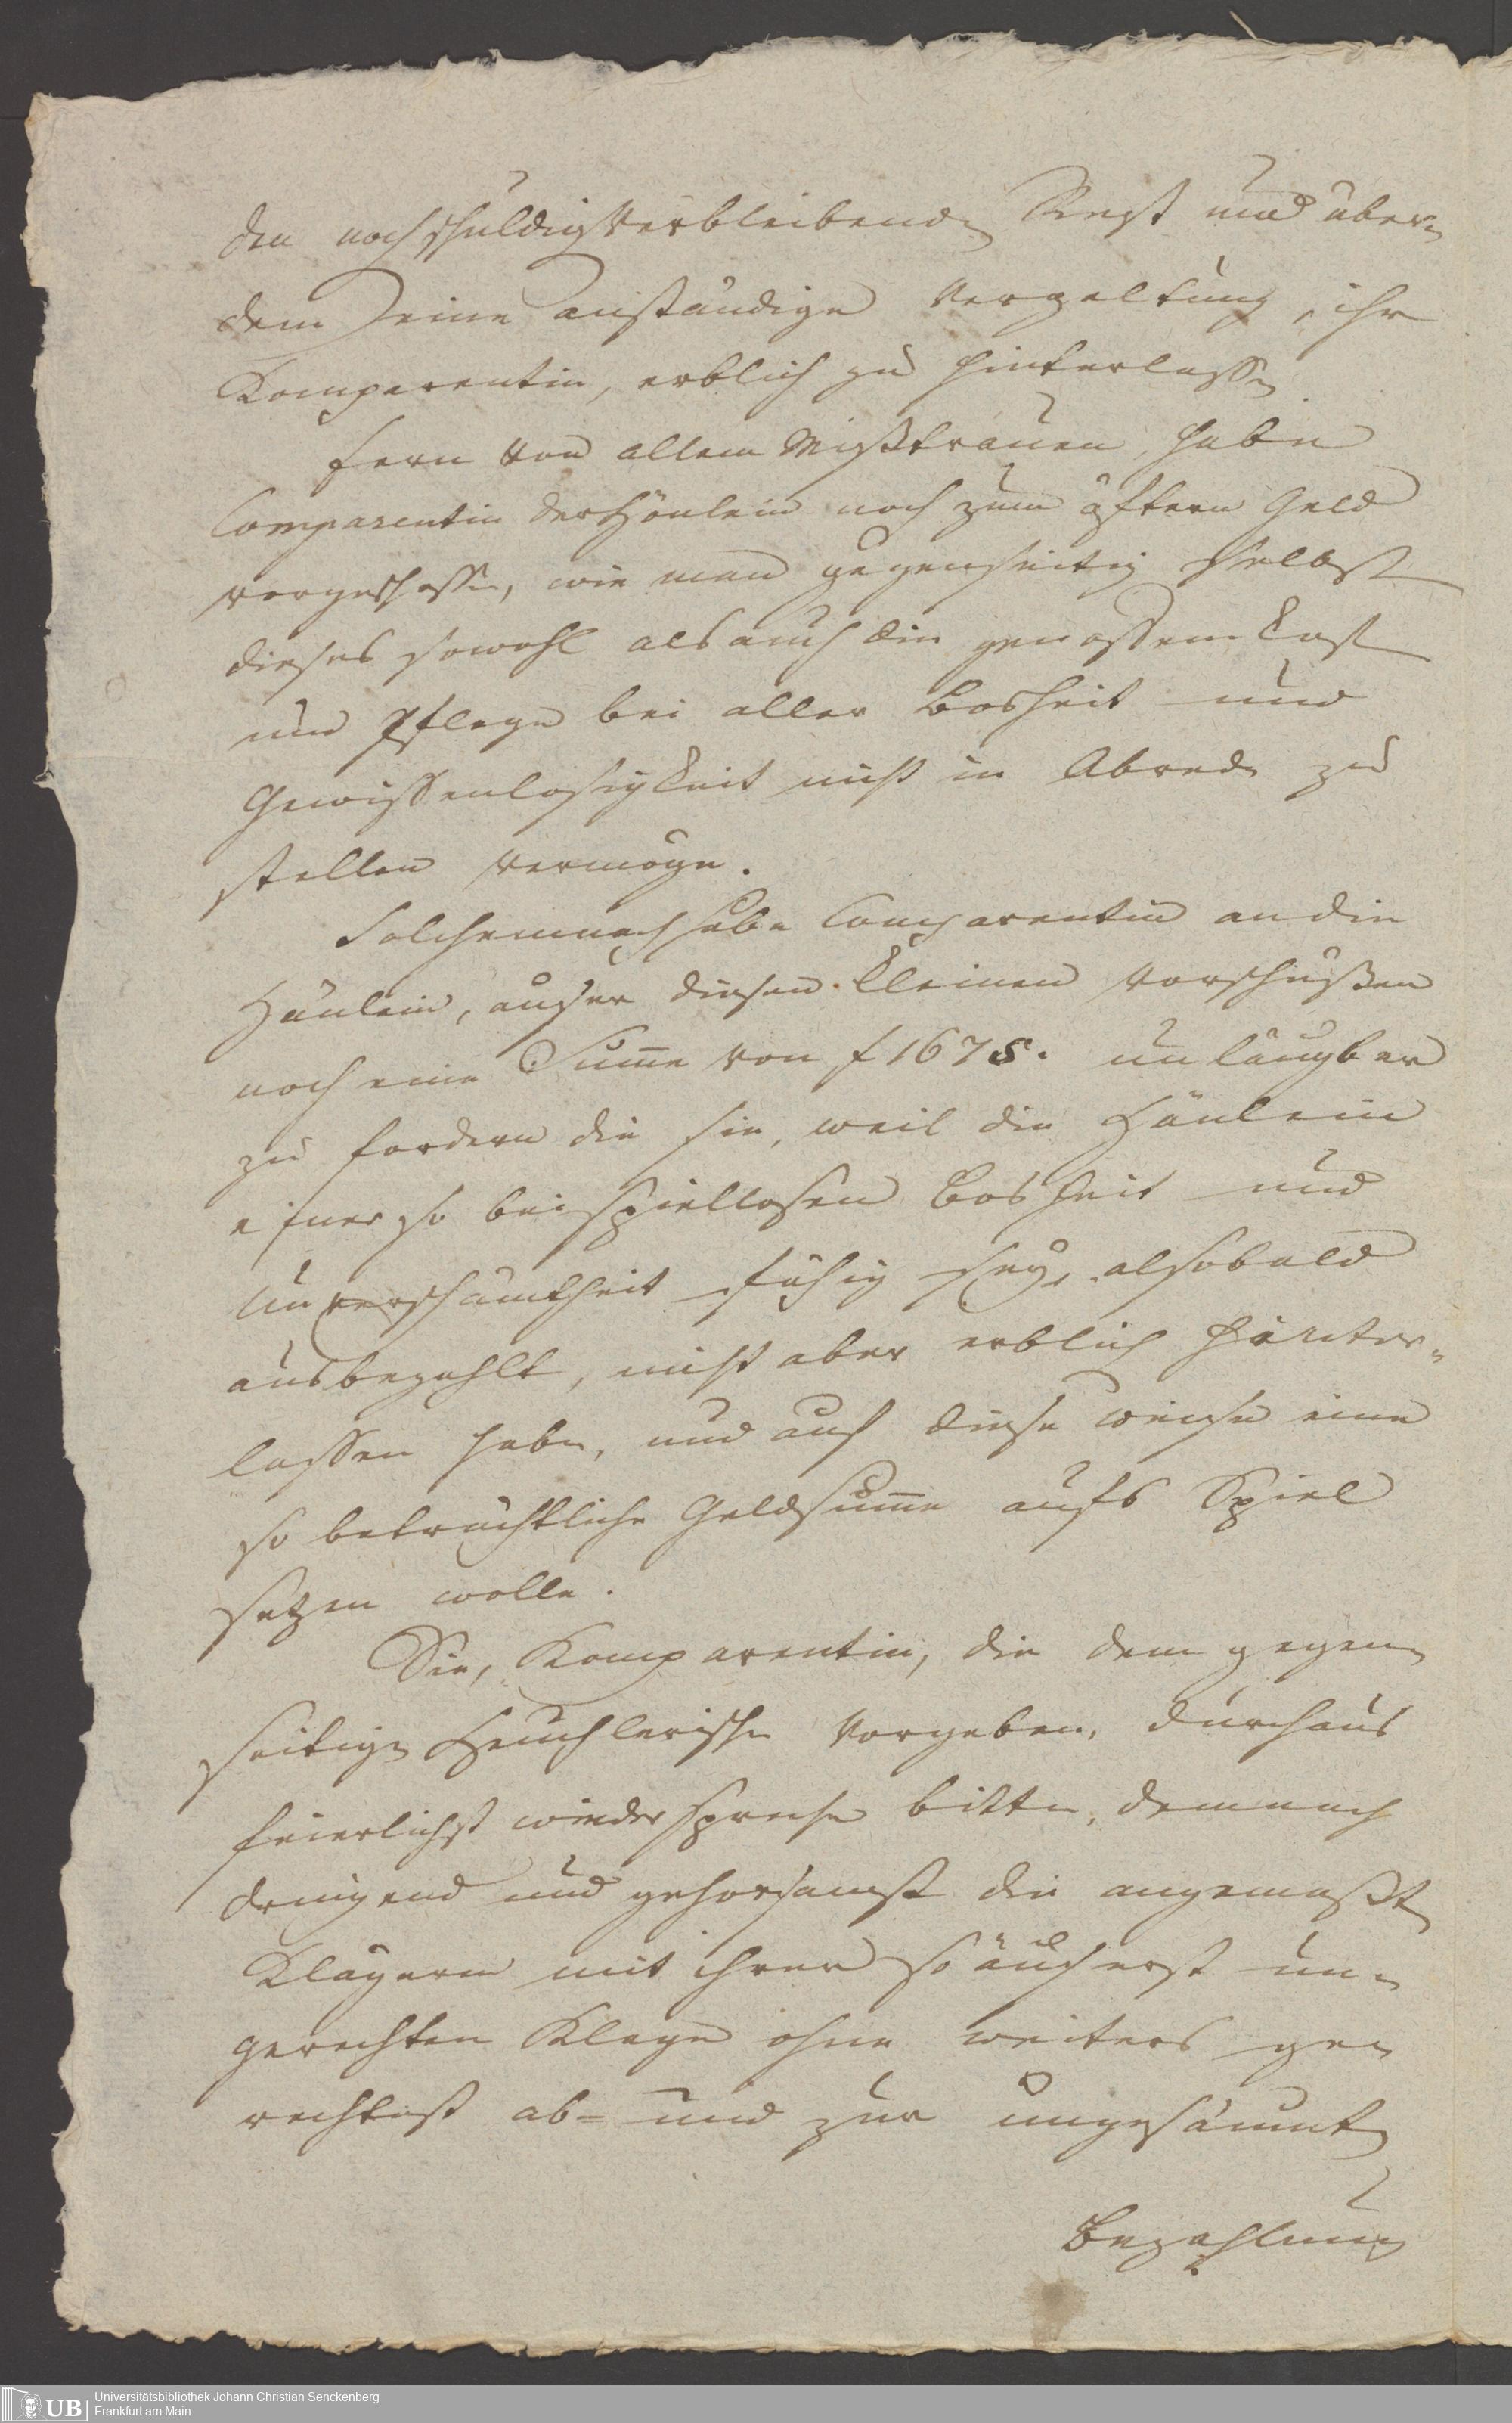 den noch schuldig verbleibenden Rest und über-
dem eine anständige Vergeltung, ihr
Komparentin, erblich zu hinterlassen.
Fern von allem Mißtrauen, habe
Comparentin der Hönlein noch zum öftern Geld
vorgeschossen, wie man gegenseitig selbst
dieses sowohl als auch die genossene Kost
und Pflege bei aller Bosheit und
Gewissenlosigkeit nicht in Abrede zu
stellen vermöge.
Solchemnach habe Comparentin an die
Hänlein, außer diesen kleinen Vorschüßen
noch eine Summe von f 1675. unläugbar
zu fordern die sie, weil die Hänlein
einer so beispiellosen Bosheit und
Unverschämtheit fähig sey, alsobald
ausbezahlt, nicht aber erblich hinter-
lassen haben, und auf diese Weise eine
so beträchtliche Geldsumme aufs Spiel
setzen wolle.
Sie, Komparentin, die dem gegen-
seitigen heuchlerischen Vorgeben, durchaus
feierlichst wiederspreche bitte, demnach
dringend und gehorsamst die angemaßte
Klägerin mit ihrer so äußerst un-
gerechten Klage ohne weiters ge-
rechtest ab- und zur ungesäumten
Bezahlung
Universitätsbibliothek Johann Christian Senckenberg
Frankfurt am Main
UB